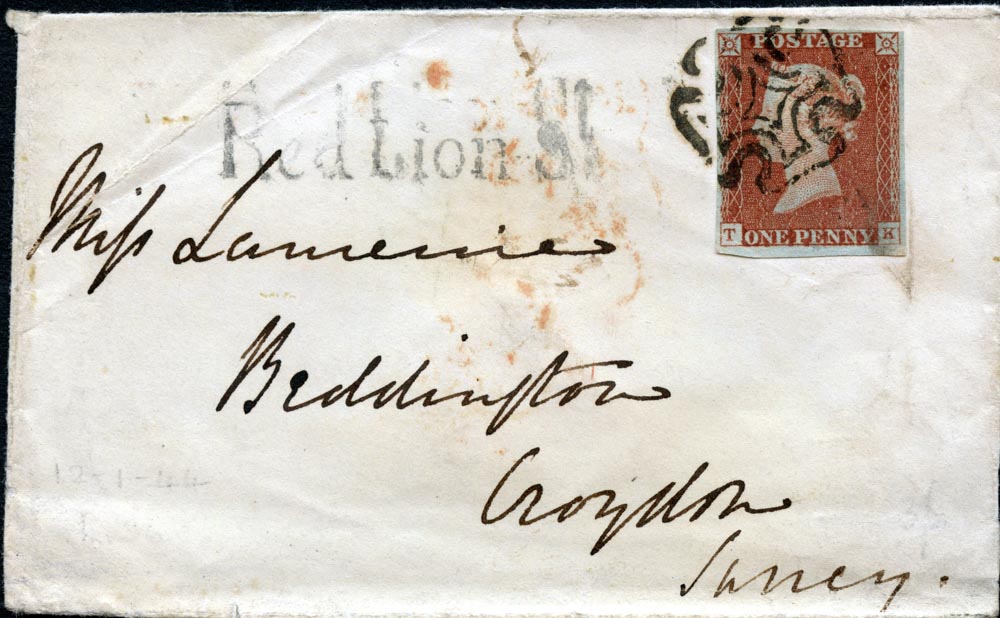 POSTAGE
Red Lion St
T ONE PENNY K
Miss
Beddington
Croydon
Surrey.
12-1-44